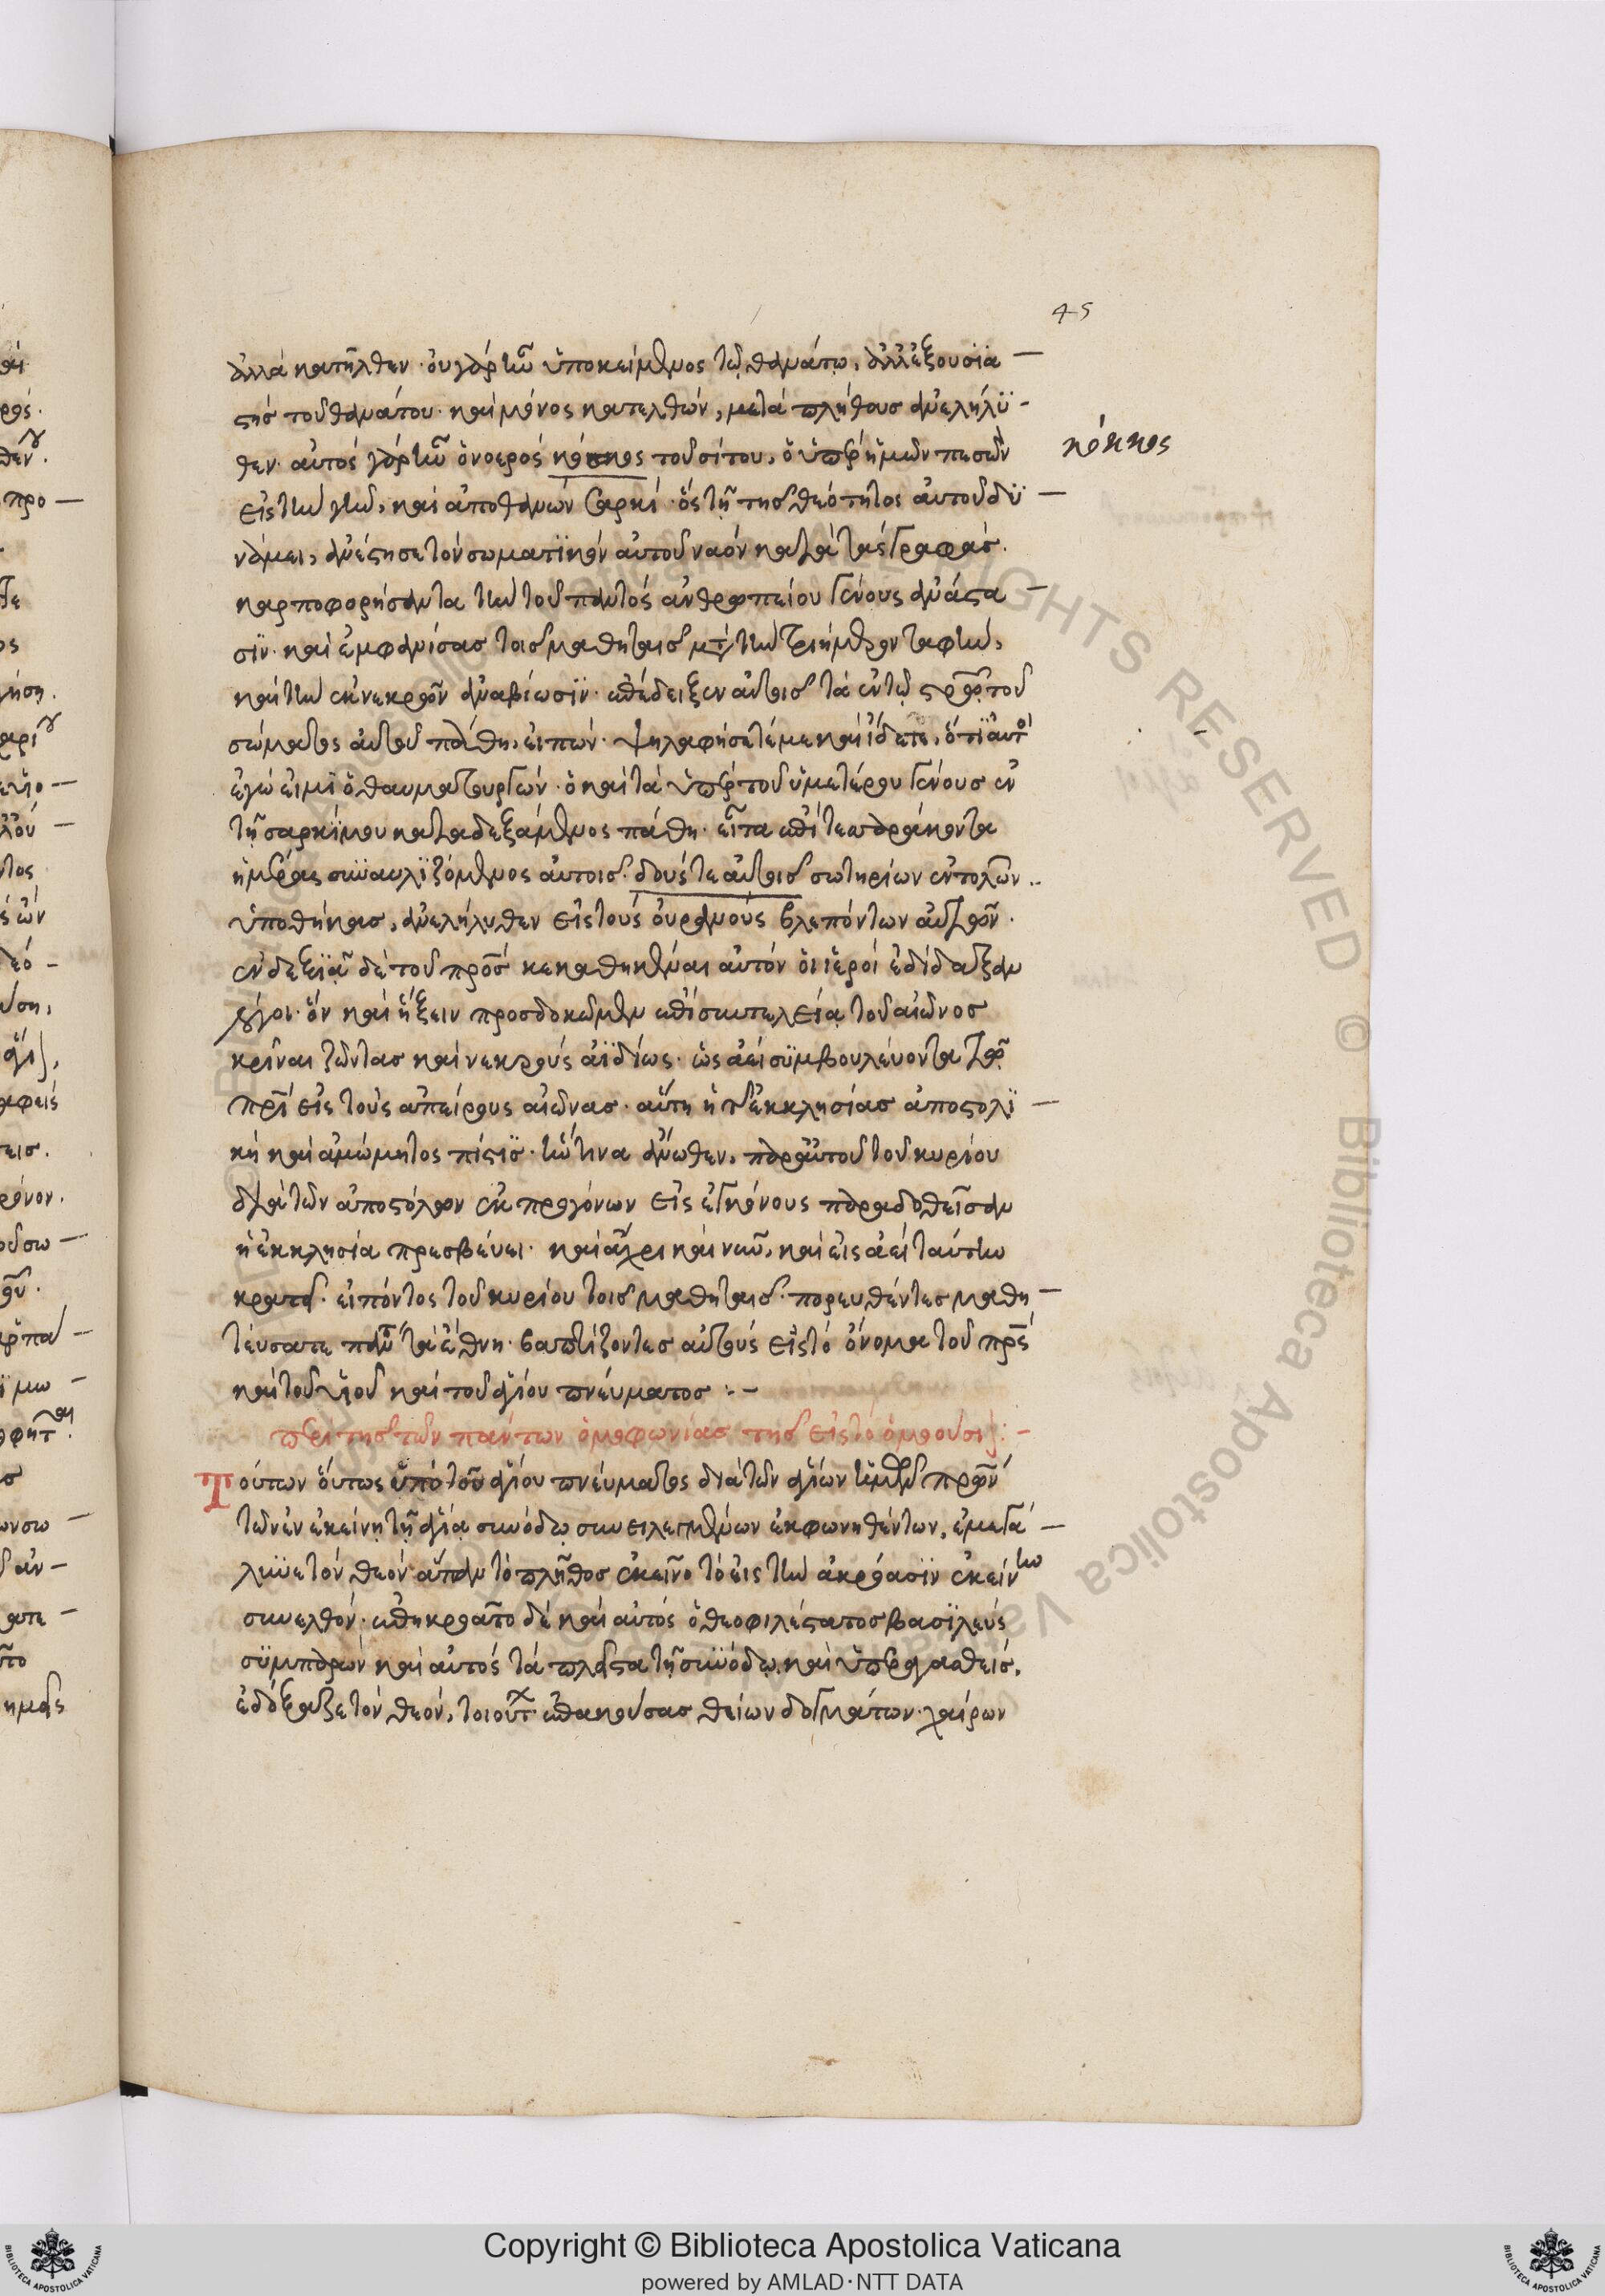 45
ἀλλὰ κατῆλθεν· οὐ γὰρ ἦν ὑποκείμενος τῷ θανάτῳ, ἀλλ' ἐξουσϊα
στὴς τοῦ θανάτου· καὶ μόνος κατελθὼν, μετὰ πλήθους ἀνεληλϋ
θεν· αὐτὸς γὰρ ἦν ὁ νοερὸς κόκκος τοῦ σίτου, ὁ ὑπὲρ ἡμῶν πεσὼν
κόκκος
εἰς τὴν γῆν, καὶ ἀποθανὼν σαρκί· ὃς τῇ τῆς θεότητος αὐτοῦ δϋ
νάμει, ἀνέστησε τὸν σωματϊκὸν αὐτοῦ ναὸν κατὰ τὰς γραφάς.
καρποφορήσαντα τὴν τοῦ παντὸς ἀνθρωπείου γένους ἀνάστα
σϊν· καὶ ἐμφανίσας τοῖς μαθηταῖς μετὰ τὴν τριήμερον ταφὴν,
καὶ τὴν ἐκ νεκρῶν ἀναβίωσϊν· ἐπέδειξεν αὐτοῖς τὰ ἐν τῷ στρῷ τοῦ
σώματος αὐτοῦ πάθη, εἰπὼν· ψηλαφήσετέ με καὶ ἴδετε, ὅτϊ αὐτὸ
ἐγώ εἰμϊ ὁ θαυματουργῶν· ὁ καὶ τὰ ὑπὲρ τοῦ ὑμετέρου γένους ἐν
τῇ σαρκί μου καταδεξάμενος πάθη· εἶτα ἐπὶ τεσσαράκοντα
ἡμέρας συναυλϊζόμενος αὐτοῖς· δούς τε αὐτοῖς σωτηρίων ἐντολῶν
ὑποθήκας, ἀνελήλυθεν εἰς τοὺς οὐρανοὺς βλεπόντων αὐτῶν·
ἐν δεξϊᾷ δὲ τοῦ πρς κεκαθηκέναι αὐτὸν οἱ ἱεροὶ ἐδίδαξαν
λόγοι· ὃν καὶ ἥξειν προσδοκῶμεν ἐπὶ συντελείᾳ τοῦ αἰῶνος
κρῖναι ζῶντας καὶ νεκροὺς ἀϊδίως· ὡς ἀεὶ σϋμβουλεύοντα τῷ
πρὶ εἰς τοὺς ἀπείρους αἰῶνας· αὕτη ἡ τῆς ἐκκλησίας ἀποστολϊ
κὴ καὶ ἀμώμητος πίστϊς· ἥντινα ἄνωθεν, παρ' αὐτοῦ τοῦ κυρίου
διὰ τῶν ἀποστόλων ἐκ προγόνων εἰς ἐκγόνους παραδοθεῖσαν
ἡ ἐκκλησία πρεσβεύει· καὶ ἄχρι καὶ νῦν, καὶ εἰς ἀεὶ ταύτην
κρατεῖ· εἰπόντος τοῦ κυρίου τοῖς μαθηταῖς· πορευθέντες μαθη
τεύσατε πάντα τὰ ἔθνη· βαπτίζοντες αὐτοὺς εἰς τὸ ὄνομα τοῦ πρς
καὶ τοῦ υἱοῦ καὶ τοῦ ἁγίου πνεύματος :-
περὶ τῆς τῶν πάντων ὁμοφωνίας τῆς εἰς τὸ ὁμοούσιον:-
Τούτων οὕτως ὑπὸ τοῦ ἁγίου πνεύματος διὰ τῶν ἁγίων ἡμῶν πρων
τῶν ἐν ἐκείνῃ τῇ ἁγίᾳ συνόδῳ συνειλεγμένων ἐκφωνηθέντων, ἐμεγά
λυνε τὸν θεὸν ἅπαν τὸ πλῆθος ἐκεῖνο τὸ εἰς τὴν ἀκρόασϊν ἐκείνην
συνελθόν· ἐπηκροᾶτο δὲ καὶ αὐτὸς ὁ θεοφιλέστατος βασϊλεὺς
σϋμπαρὼν καὶ αὐτὸς τὰ πλεῖστα τῇ συνόδῳ, καὶ ὑπεραγασθεὶς,
ἐδόξαζε τὸν θεόν, τοιούτων ἐπακούσας θείων δογμάτων· χαίρων